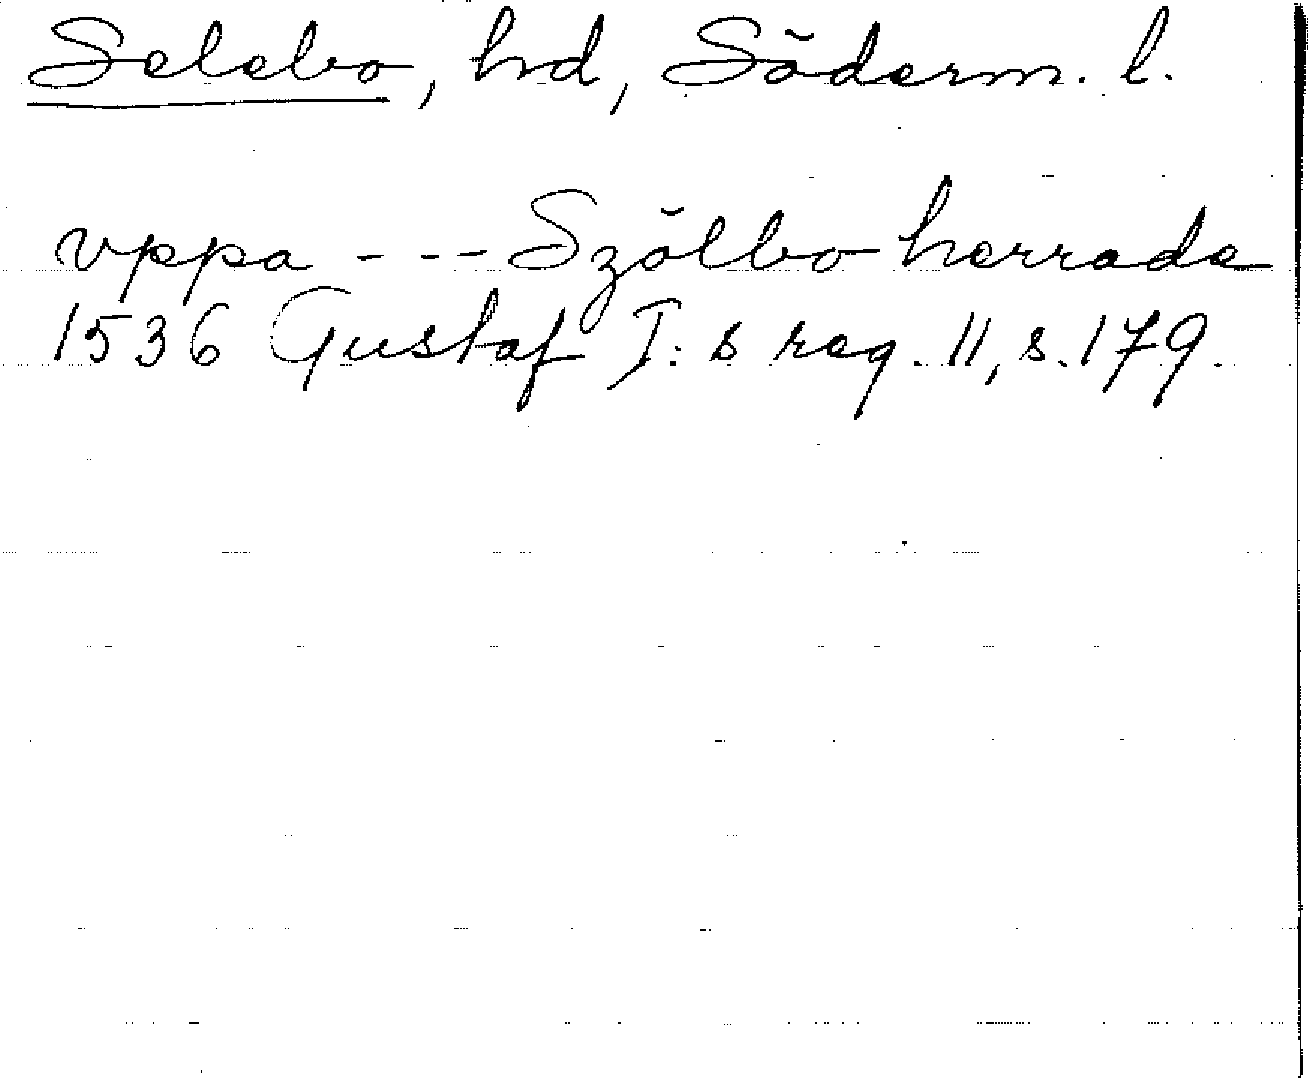 Selebo, hd, Söderm. l.
vppa - - - Szölbo herrade
1536 Gustaf I:s reg. 11, s. 179.